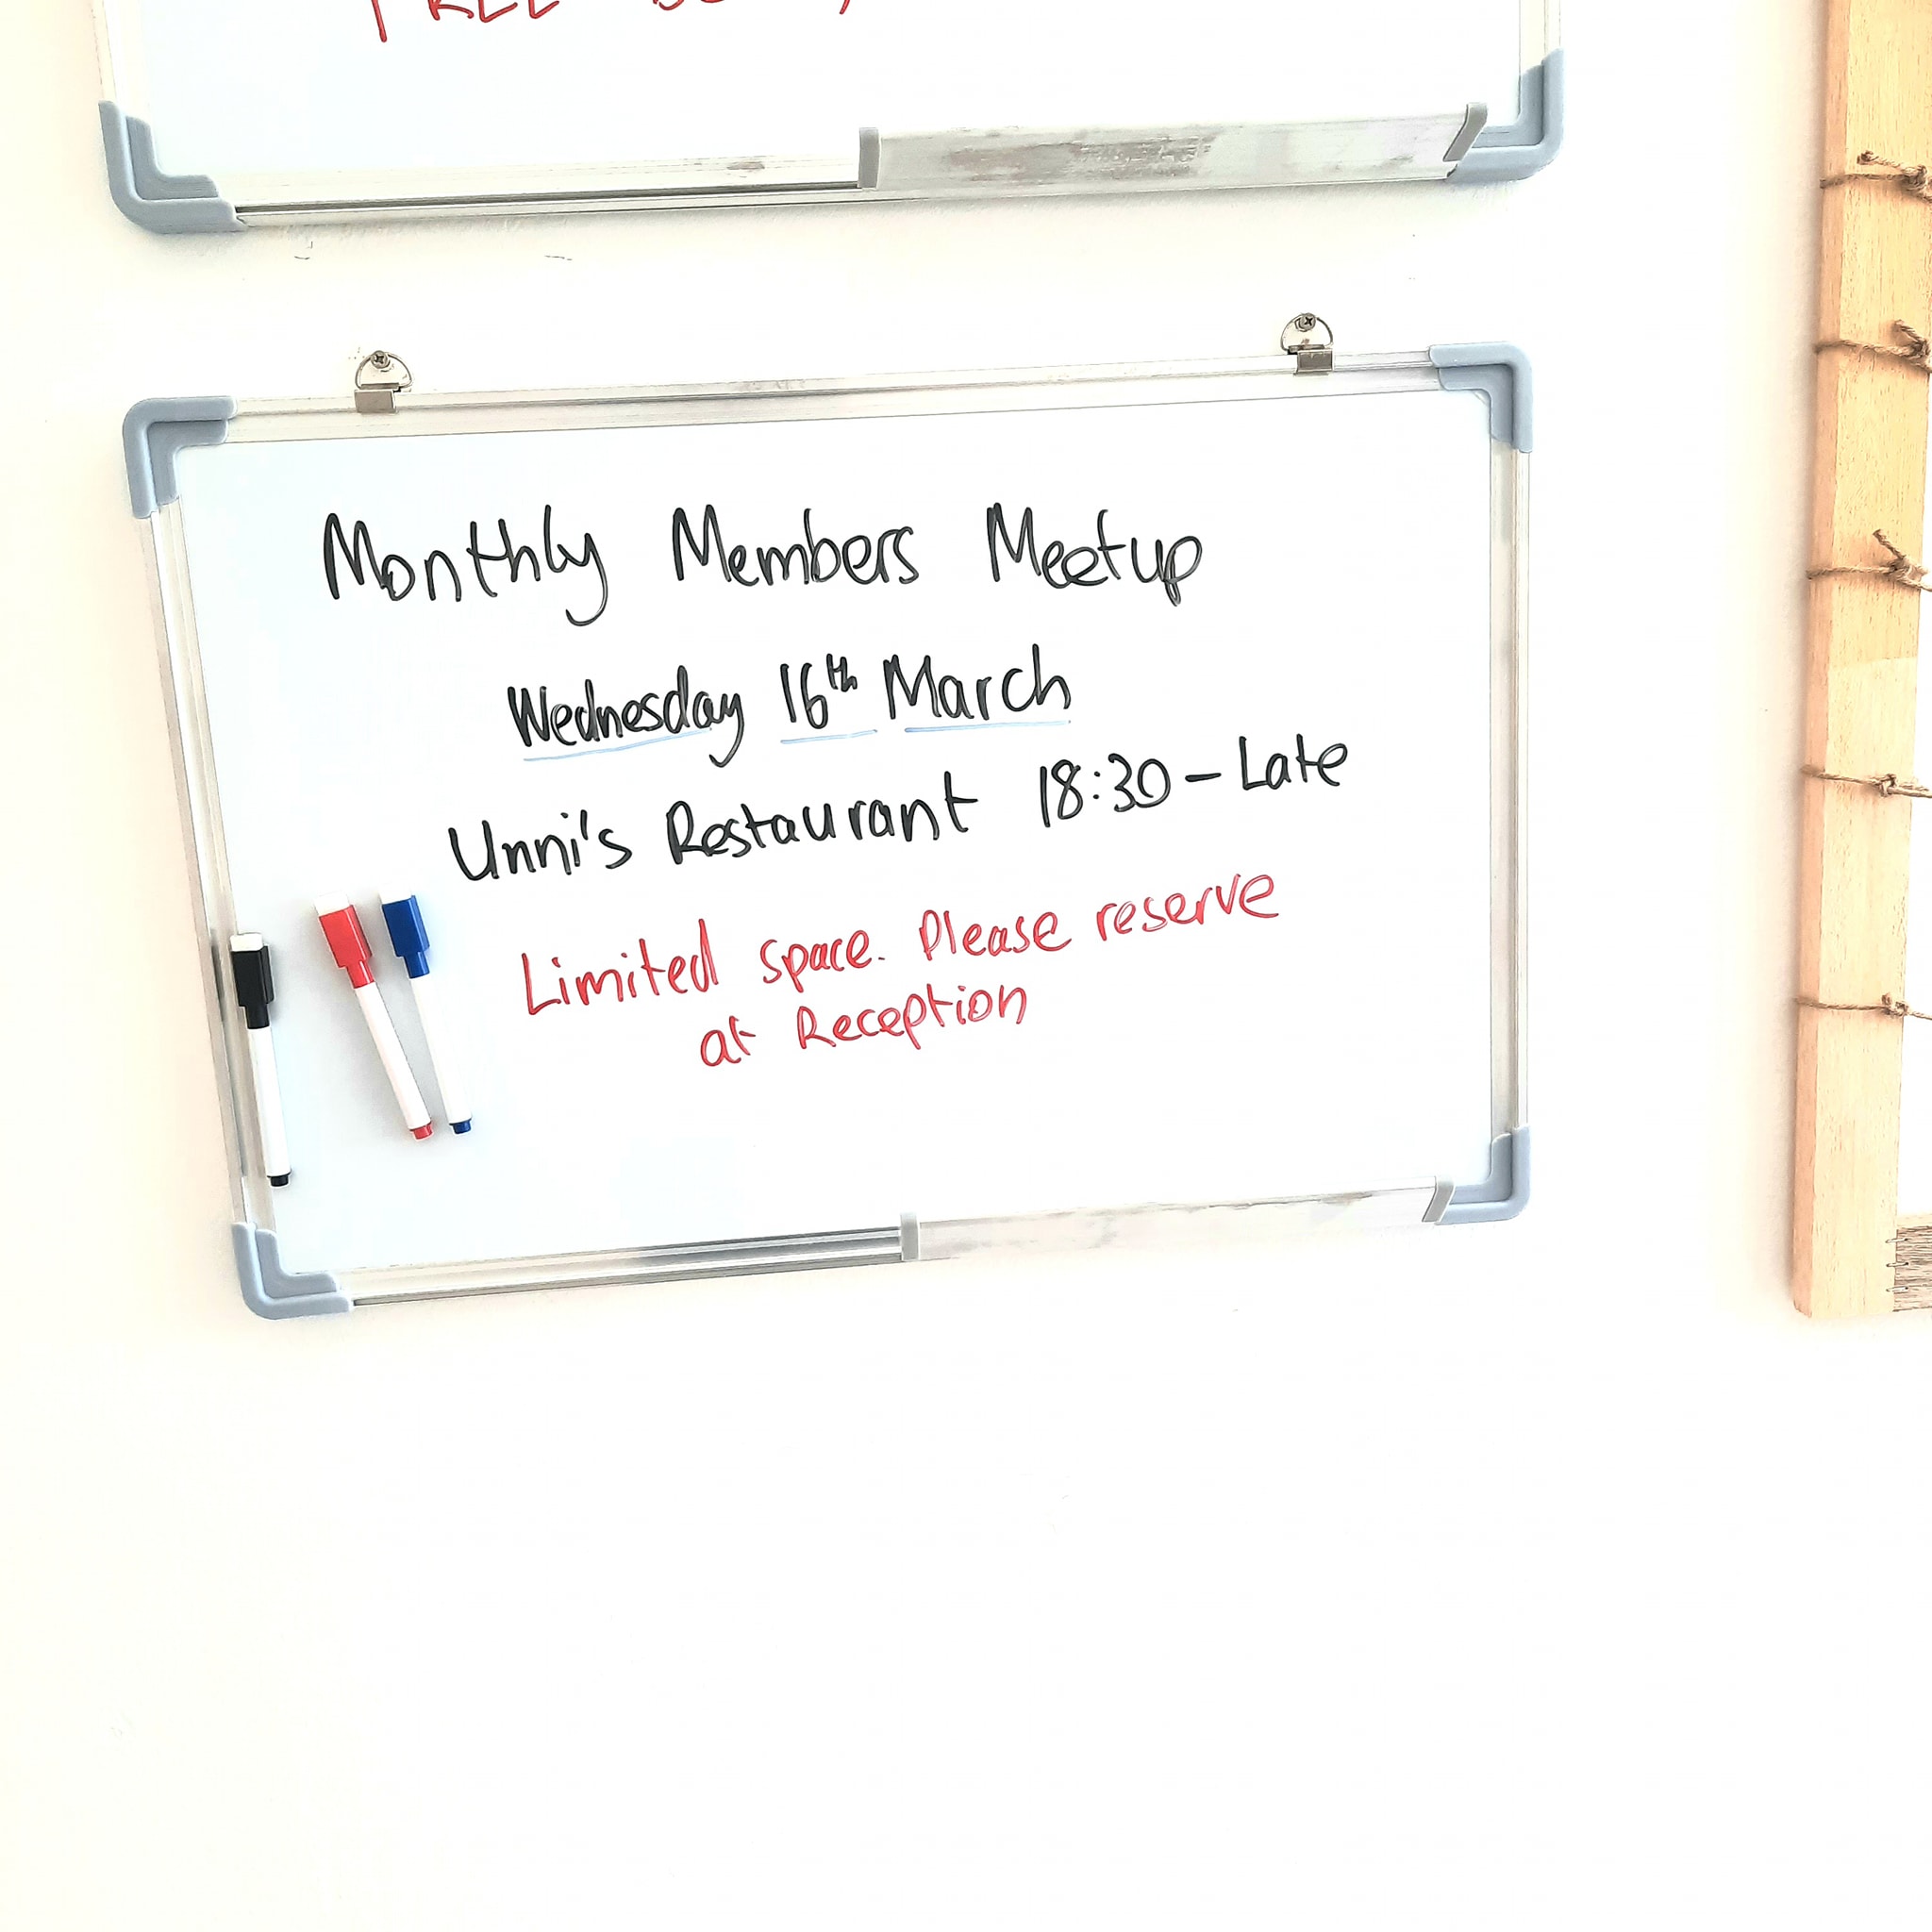 FREE
Monthly Members Meetup
Wednesday 16th March
Unni's Restaurant 18:30 - Late
Limited space. Please reserve
at Reception